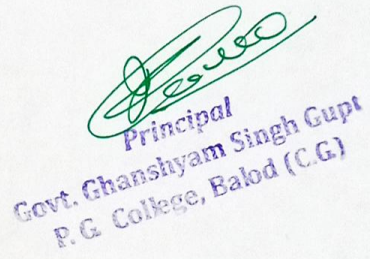 Principal
Govt. Ghanshyam Singh Gupt
P. G. College, Balod (C.G.)